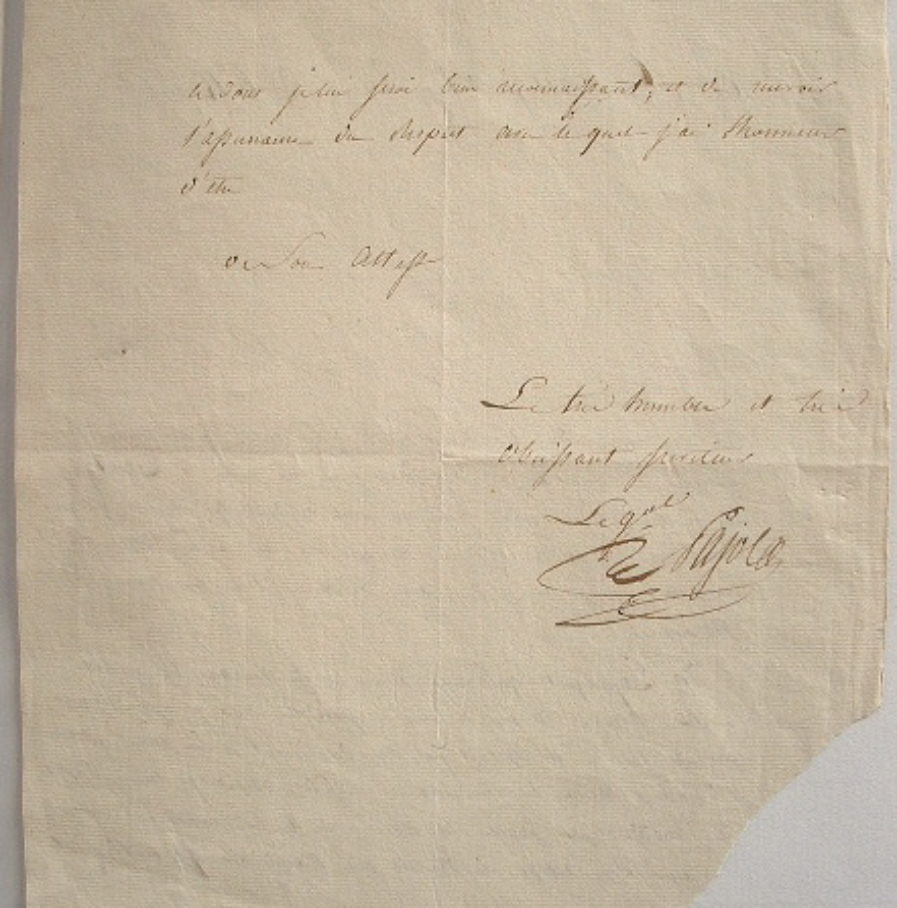 ce dont je lui serai bien reconnaissant, et de recevoir
l'assurance du Respect avec le quel j'ai l'honneur
d'être
de Son Altesse
Le très humble et très
Obéissant serviteur
Le gal
Pajol